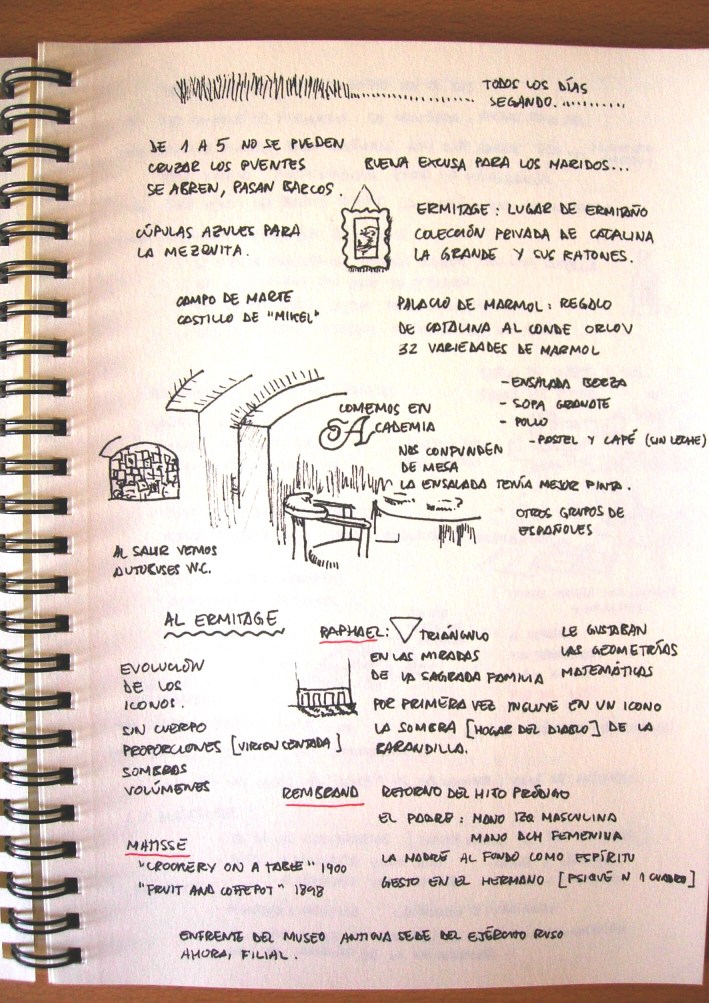 TODOS LOS DÍAS
SEGANDO...
DE 1 A 5 NO SE PUEDEN
CRUZAR LOS PUENTES
SE ABREN, PASAN BARCOS.
BUENA EXCUSA PARA LOS MARIDOS...
CÚPULAS AZULES PARA
LA MEZQUITA.
ERMITAGE: LUGAR DE ERMITAÑO
COLECCIÓN PRIVADA DE CATALINA
LA GRANDE Y SUS RATONES.
CAMPO DE MARTE
CASTILLO DE "MIKEL"
PALACIO DE MARMOL: REGALO
DE CATALINA AL CONDE ORLOV
32 VARIEDADES DE MARMOL
COMEMOS EN
ACADEMIA
- ENSALADA BERZA
- SOPA GRANOTE
- POLLO
- POSTEL Y CAFÉ (SIN LECHE)
NOS CONFUNDEN
DE MESA
LA ENSALADA TENÍA MEJOR PINTA.
OTROS GRUPOS DE
ESPAÑOLES
AL SALIR VEMOS
AUTOBUSES W.C.
AL ERMITAGE
EVOLUCIÓN
DE LOS
ICONOS.
SIN CUERPO
PROPORCIONES [VIRGEN SENTADA]
SOMBRAS
VOLÚMENES
RAPHAEL: TRIÁNGULO
EN LAS MIRADAS
DE LA SAGRADA FAMILIA
LE GUSTABAN
LAS GEOMETRÍAS
MATEMÁTICAS
POR PRIMERA VEZ INCLUYE EN UN ICONO
LA SOMBRA [HOGAR DEL DIABLO] DE LA
BARANDILLA.
REMBRAND RETORNO DEL HIJO PRÓDIGO
EL PADRE: MANO IZQ MASCULINA
MANO DCH FEMENINA
LA MADRE AL FONDO COMO ESPÍRITU
GESTO EN EL HERMANO [PSIQUE N 1 CUADRO]
MATISSE
"CROCKERY ON A TABLE" 1900
"FRUIT AND COFFEPOT" 1898
ENFRENTE DEL MUSEO ANTIGUA SEDE DEL EJÉRCITO RUSO
AHORA, FILIAL.